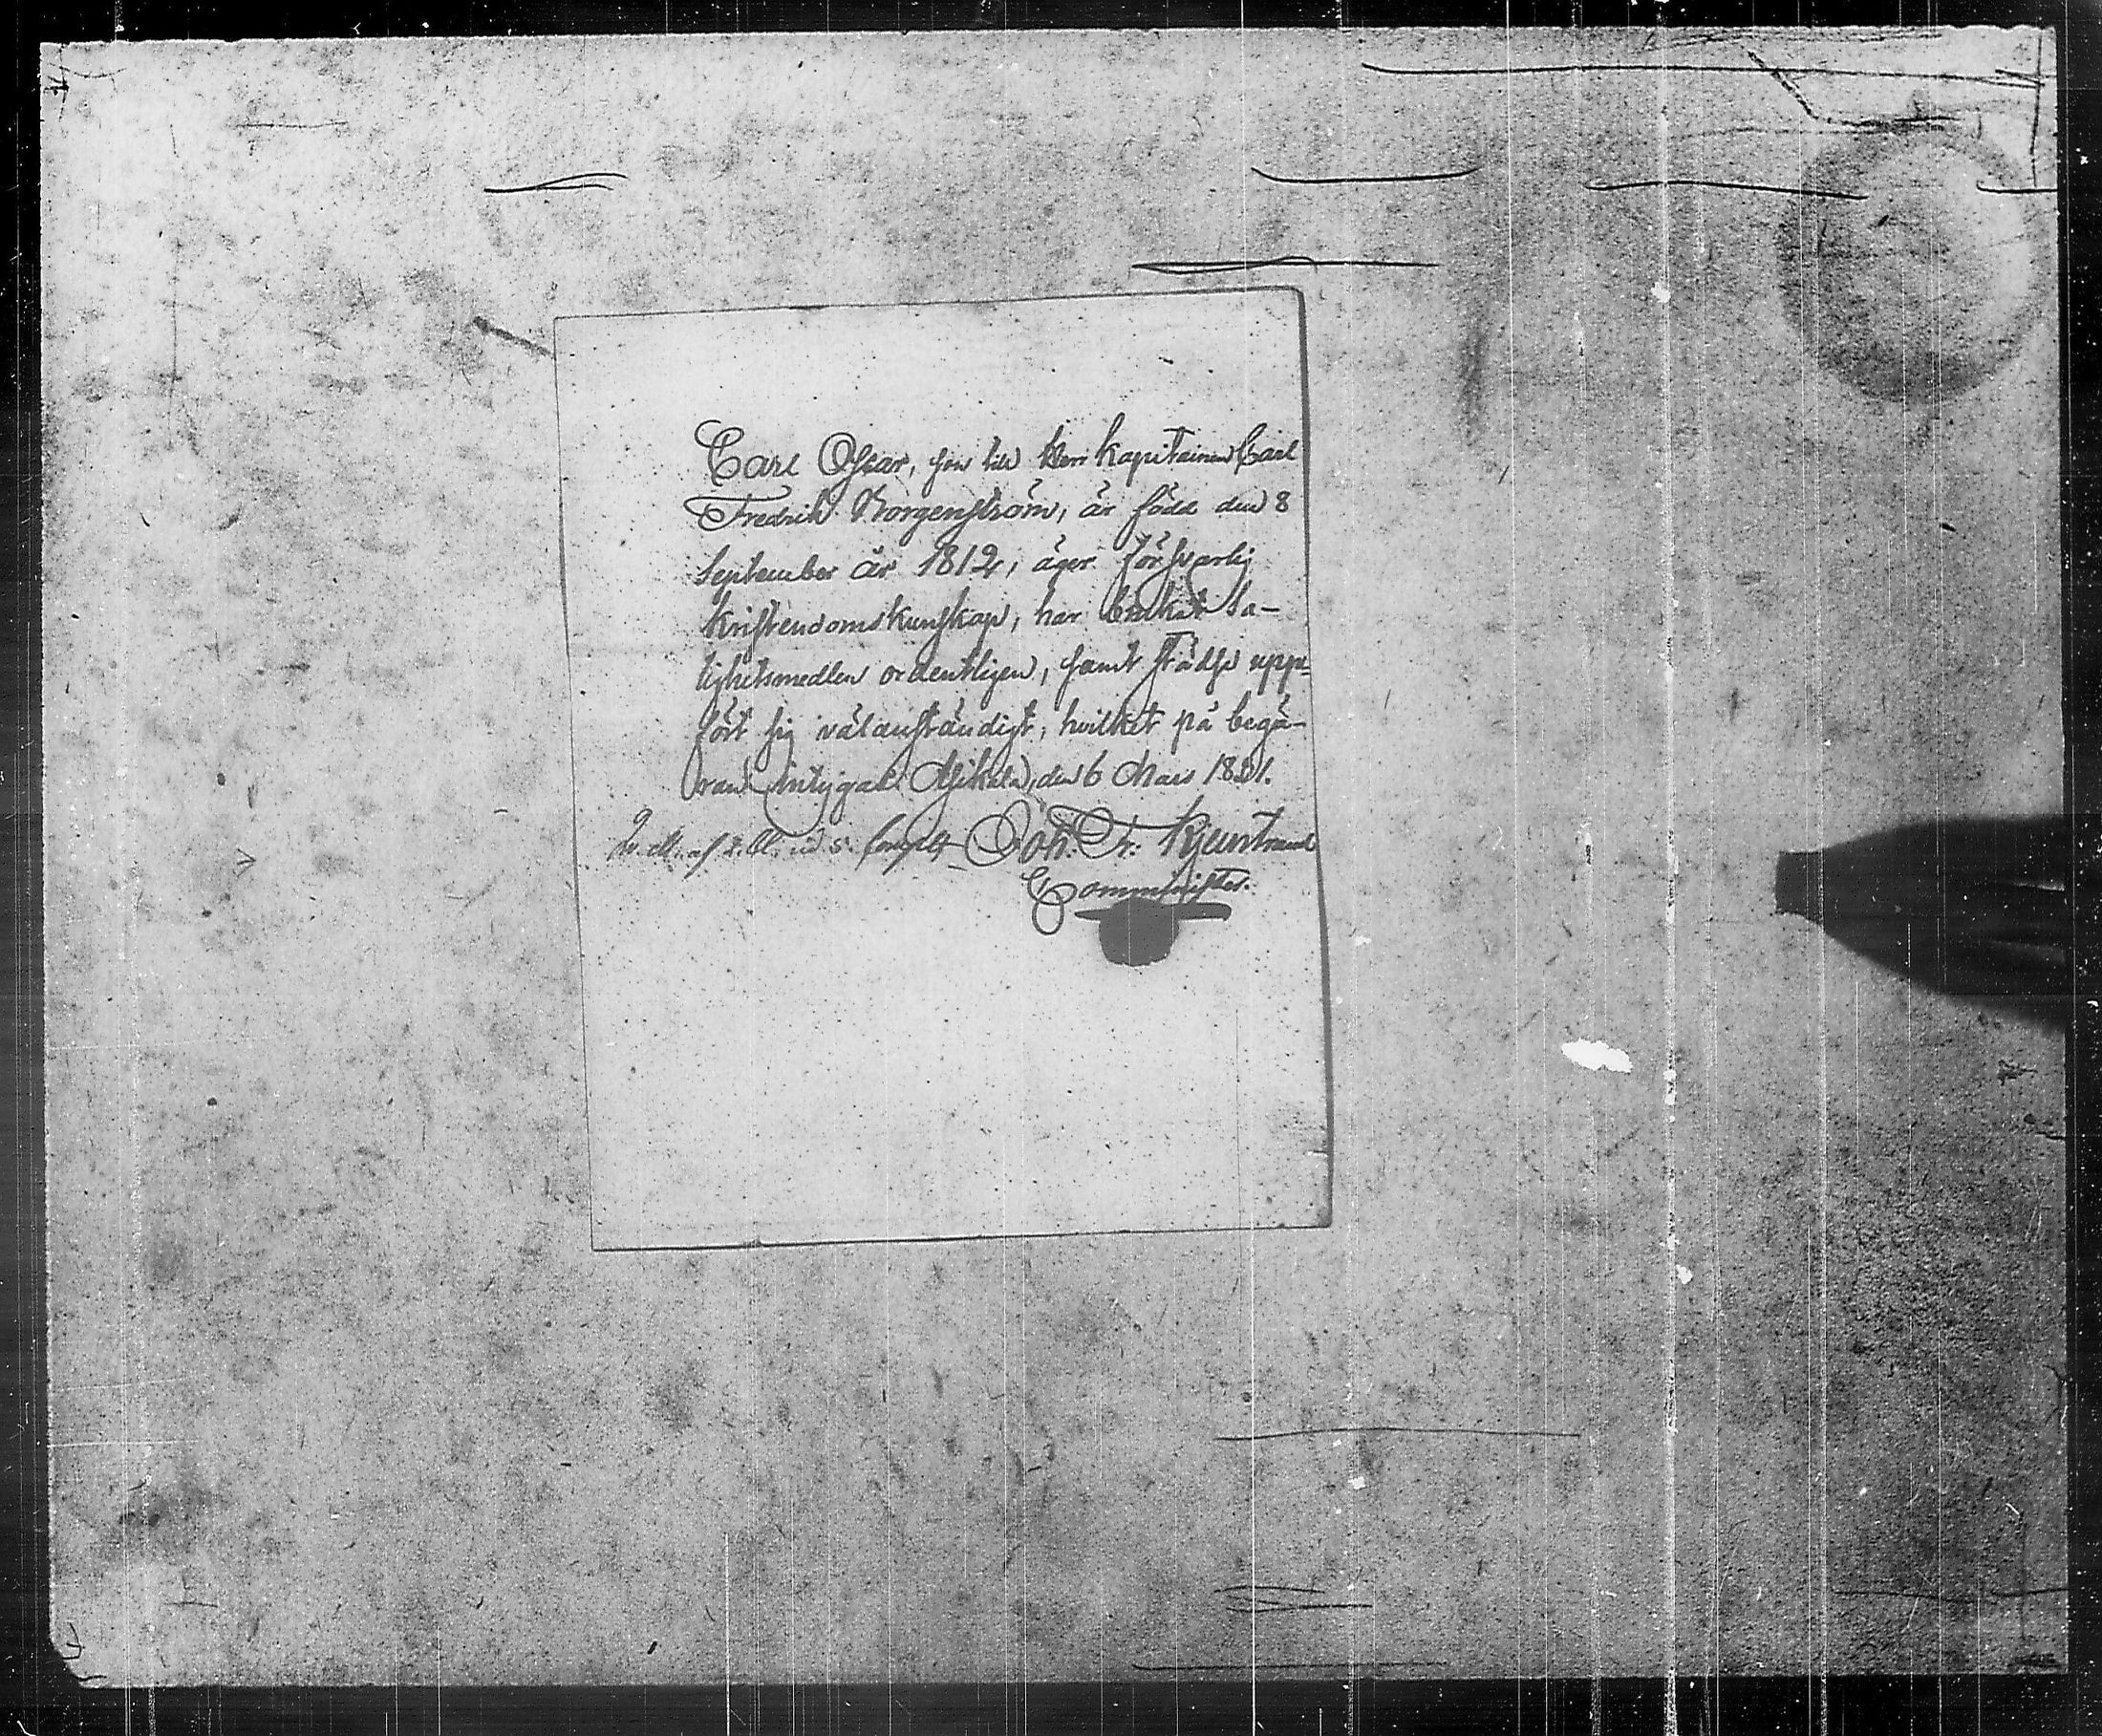 Carl Oscar, son till Herr Kapitainen Carl
Fredrik Borgenström, är född den 8
September år 1812, äger försvarlig
kristendomskunskap, har brukat sa-
lighetsmedlen ordentligen, samt städse upp-
fört sig välanständigt, hvilket på begä-
ran intygar. Mikola, den 6 Mars 1821.
Joh. Fr.
Comminister.